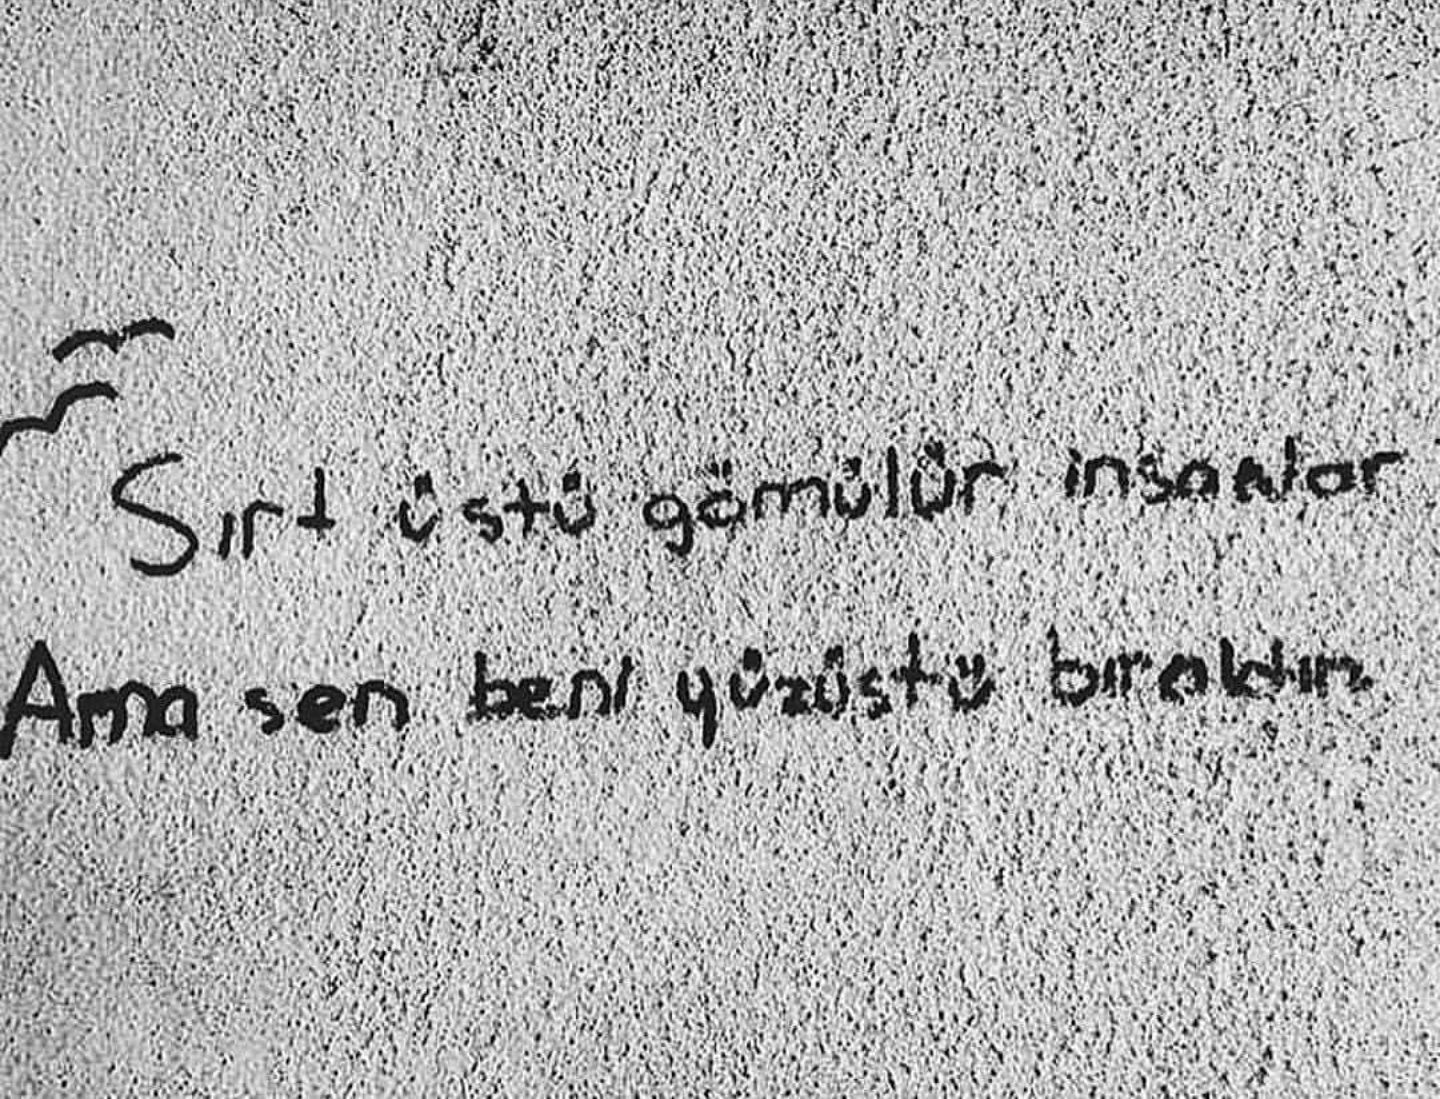 Sırt üstü gömülür insanlar
Ama sen beni yüzüstü bıraktın